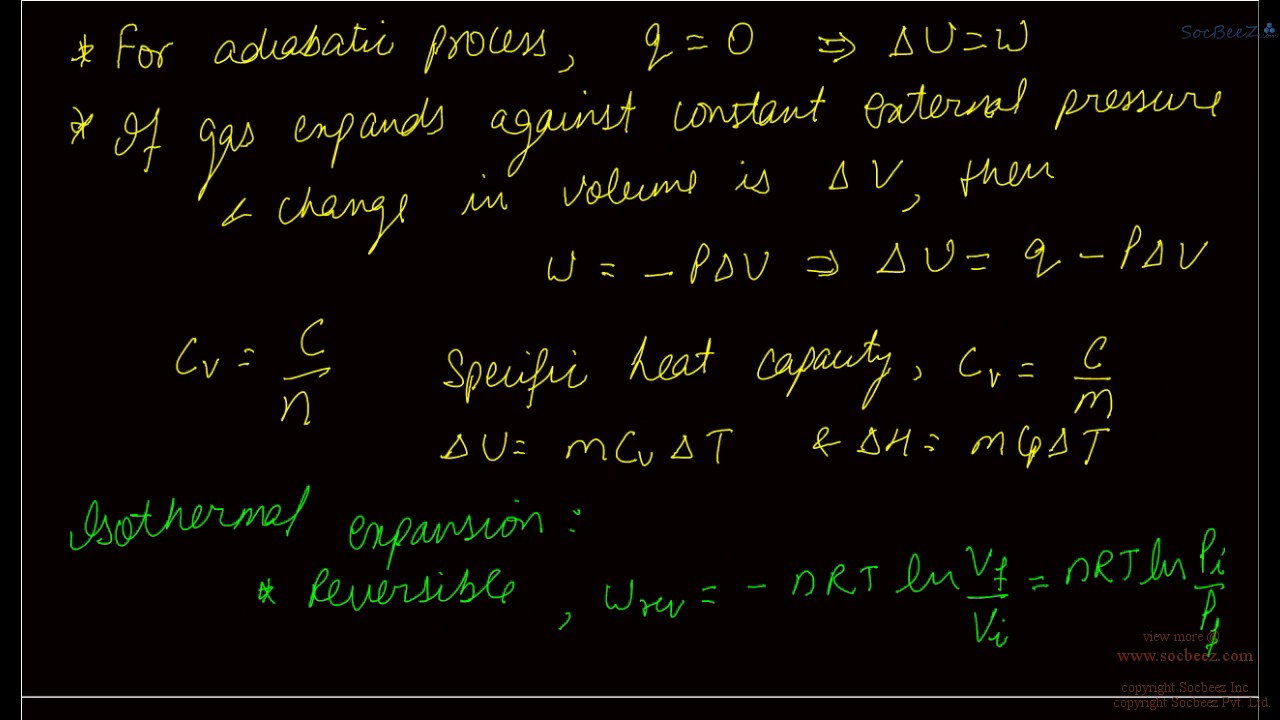 * For adiabatic process, q = 0 ⇒ ΔU = W
SocBeeZ
* If gas expands against constant external pressure
& change in volume is ΔV, then
W = -PΔV ⇒ ΔU = q - PΔV
Cv = C/n Specific heat capacity, Cv = C/m
ΔU = mCvΔT & ΔH = mCpΔT
Isothermal expansion :
* Reversible, Wrev = - nRT ln Vf/Vi = nRT ln Pi/Pf
view more @
www.socbeez.com
copyright Socbeez Inc
copyright Socbeez Pvt. Ltd.